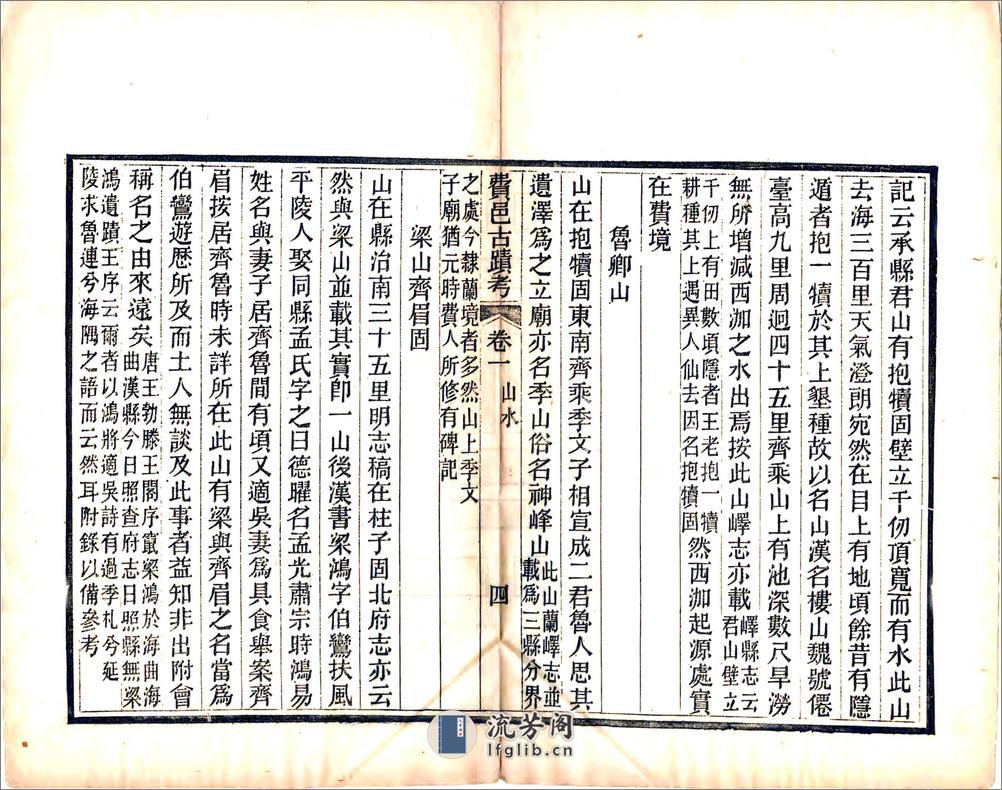 記云承縣君山有抱犢固壁立千仞頂寬而有水此山
去海三百里天氣澄朗宛然在目上有地頃餘昔有隱
遁者抱一犢於其上墾種故以名山漢名樓山魏號僊
臺高九里周迴四十五里齊乘山上有池深數尺旱澇
無所增減西泇之水出焉按此山嶧志亦載嶧縣志云
君山壁立
千仞上有田數頃隱者王老抱一犢
耕種其上遇異人仙去因名抱犢固然西泇起源處實
在費境
魯卿山
山在抱犢固東南齊乘季文子相宣成二君魯人思其
遺澤爲之立廟亦名季山俗名神峰山此山蘭嶧志並
載爲三縣分界
費邑古蹟考
卷一
山水
四
之處今隸蘭境者多然山上季文
子廟猶元時費人所修有碑記
梁山齊眉固
山在縣治南三十五里明志稿在柱子固北府志亦云
然與梁山並載其實卽一山後漢書梁鴻字伯鸞扶風
平陵人娶同縣孟氏字之曰德曜名孟光肅宗時鴻易
姓名與妻子居齊魯間有頃又適吳妻爲具食舉案齊
眉按居齊魯時未詳所在此山有梁與齊眉之名當爲
伯鸞遊歷所及而土人無談及此事者益知非出附會
稱名之由來遠矣唐王勃滕王閣序竄梁鴻於海曲海
曲漢縣今日照查府志日照縣無梁
鴻遺蹟王序云爾者以鴻將適吳詩有過季札兮延
陵求魯連兮海隅之語而云然耳附錄以備參考
流芳阁
lfglib.cn